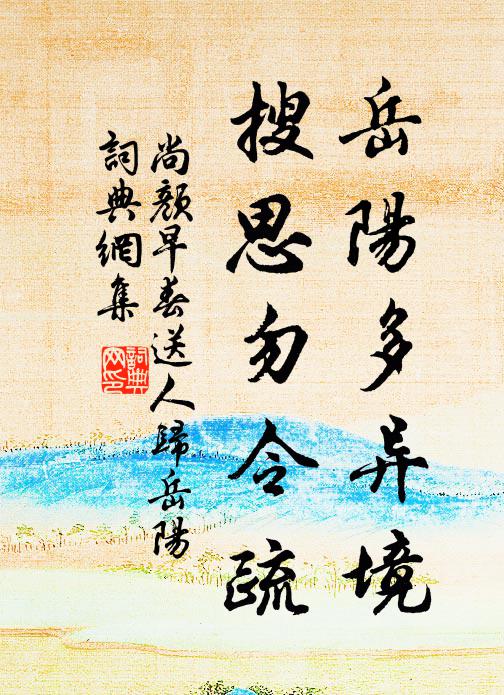 岳陽多异境
搜思勿令疏
尚顏早春送人歸岳陽
詞典網集
詞典
网印